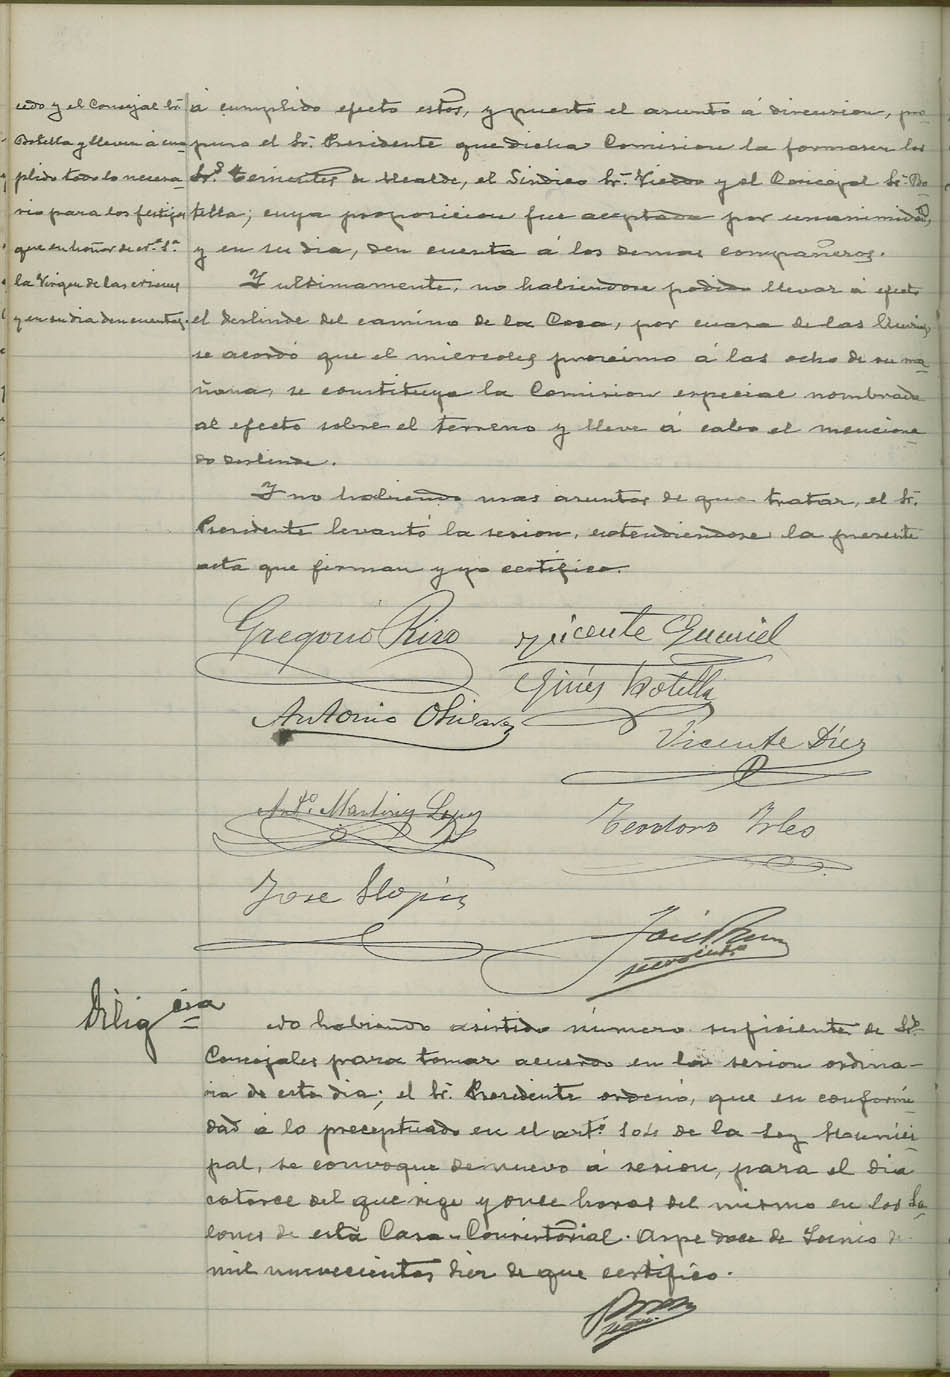 cedo y el Concejal Sr.
Botella y lleven á cum-
plido todo lo necesa-
rio para los festejos
que en honor de ntra. Sra.
la Virgen de las Nieves
y en su dia den cuenta.
á cumplido efecto estos, y puesto el asunto á discusion, pro-
puso el Sr. Presidente que dicha Comision la formasen los
Sres. Tenientes de Alcalde, el Sindico Sr. y el Concejal Sr. Bo-
tella; cuya proposicion fue aceptada por unanimidad,
y en su dia, den cuenta á los demas compañeros.
Y ultimamente, no habiendose podido llevar á efecto
el deslinde del camino de la Coca, por causa de las lluvias,
se acordó que el miercoles proximo á las ocho de su ma-
ñana, se constituya la Comision especial nombrada
al efecto sobre el terreno y lleve á cabo el menciona-
do deslinde.
Y no habiendo mas asuntos de que tratar, el Sr.
Presidente levantó la sesion, extendiendose la presente
acta que firman y yo certifico.
Gregorio Rizo Vicente
Ginés Botella
Antonio Olivares
Vicente Díez
Anto. Martinez Lopez
Teodoro Irles
Jose Llopis
José
secretario
Diligcia
No habiendo asistido número suficiente de Sres.
Concejales para tomar acuerdo en la sesion ordina-
ria de este dia; el Sr. Presidente ordenó, que en conformi-
dad á lo preceptuado en el arto. 104 de la Ley Munici-
pal, se convoque de nuevo á sesion, para el dia
catorce del que rige y once horas del mismo en los Sa-
lones de esta Casa-Consistorial. Aspe doce de Junio de
mil nuevecientos diez de que certifico.